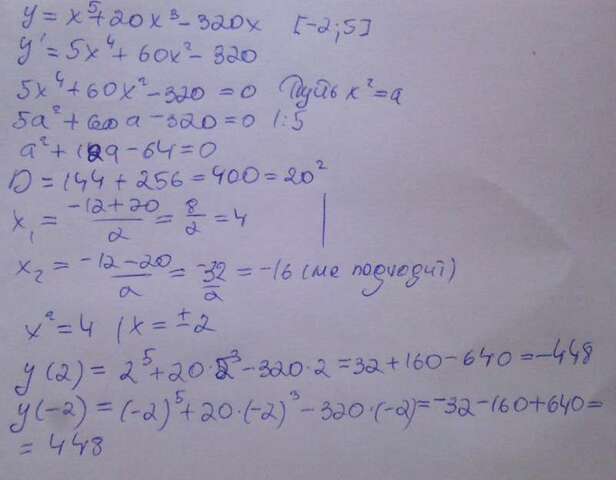 y = x⁵ + 20x³ - 320x [-2; 5]
y' = 5x⁴ + 60x² - 320
5x⁴ + 60x² - 320 = 0 Пусть x² = a
5a² + 60a - 320 = 0 |:5
a² + 12a - 64 = 0
D = 144 + 256 = 400 = 20²
x₁ = (-12 + 20)/2 = 8/2 = 4
x₂ = (-12 - 20)/2 = -32/2 = -16 (не подходит)
x² = 4 | x = ±2
y(2) = 2⁵ + 20·2³ - 320·2 = 32 + 160 - 640 = -448
y(-2) = (-2)⁵ + 20·(-2)³ - 320·(-2) = -32 - 160 + 640 =
= 448